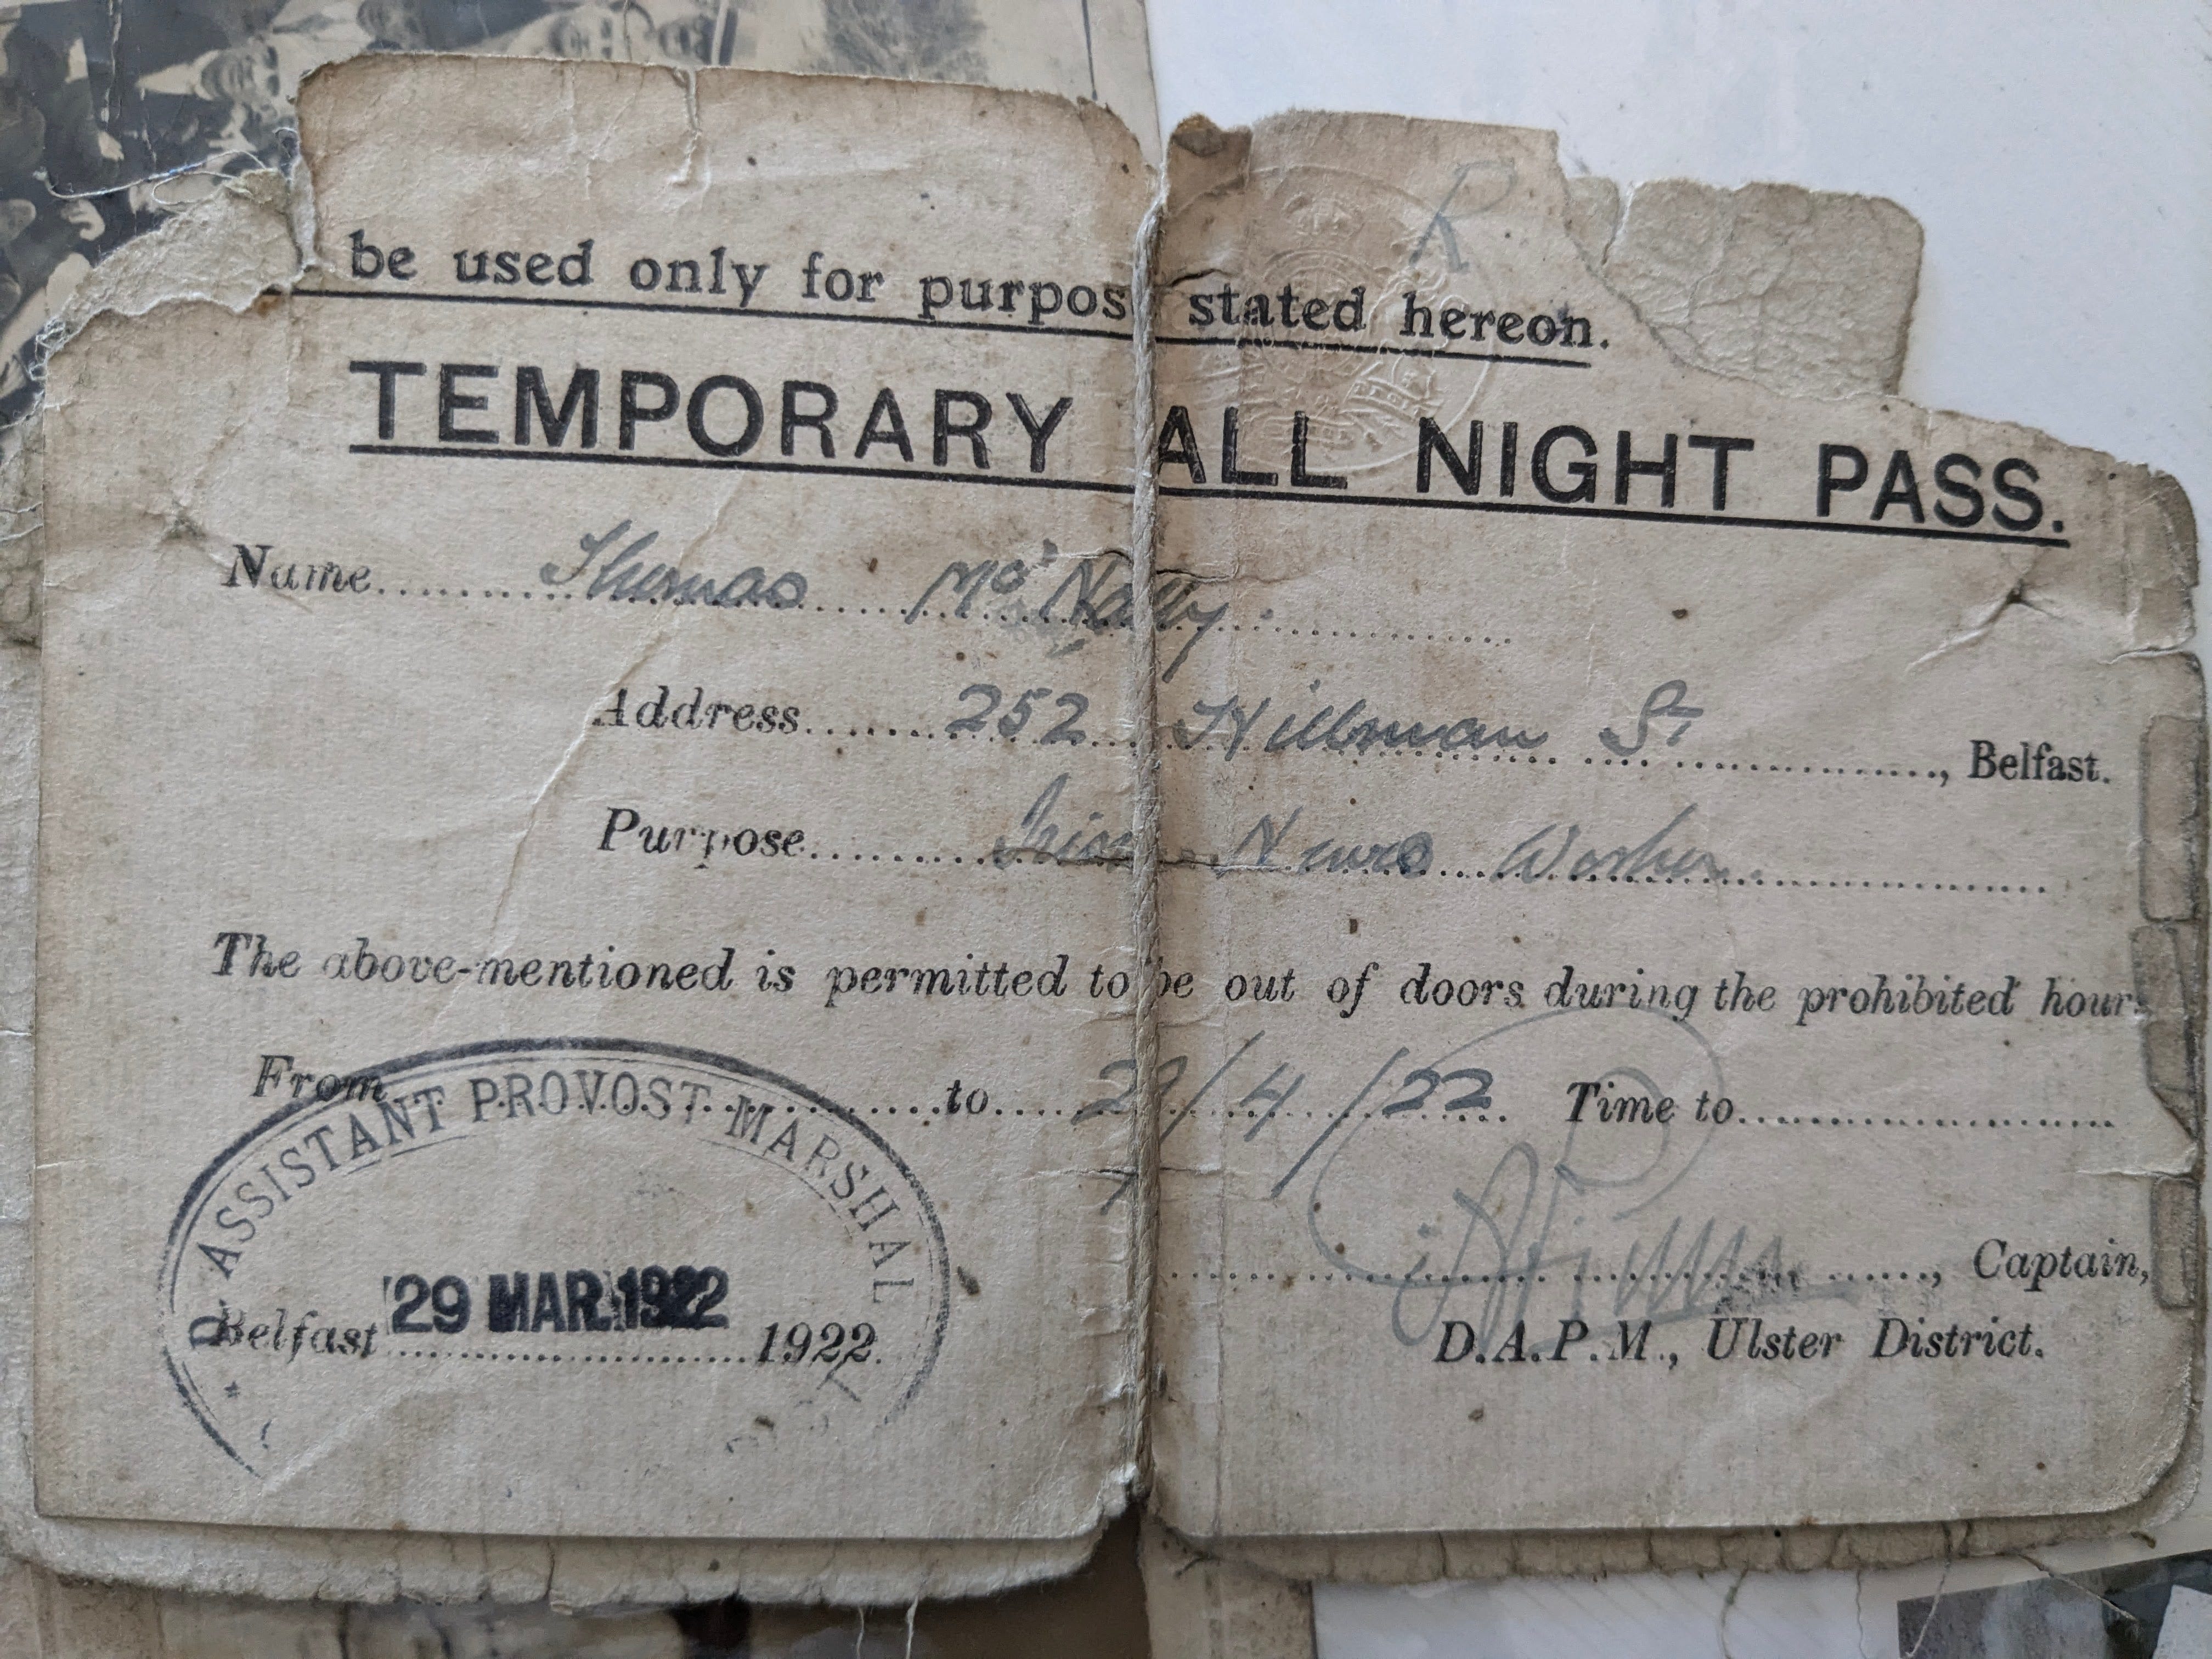 R
be used only for purpos stated hereon.
TEMPORARY ALL NIGHT PASS.
Name Thomas McNally
Address 252 Hillman St, Belfast.
Purpose Irish News Worker
The above-mentioned is permitted to be out of doors during the prohibited hours
From to 29/4/22 Time to
D. ASSISTANT PROVOST MARSHAL
Belfast 29 MAR. 1922 1922.
, Captain,
D.A.P.M., Ulster District.